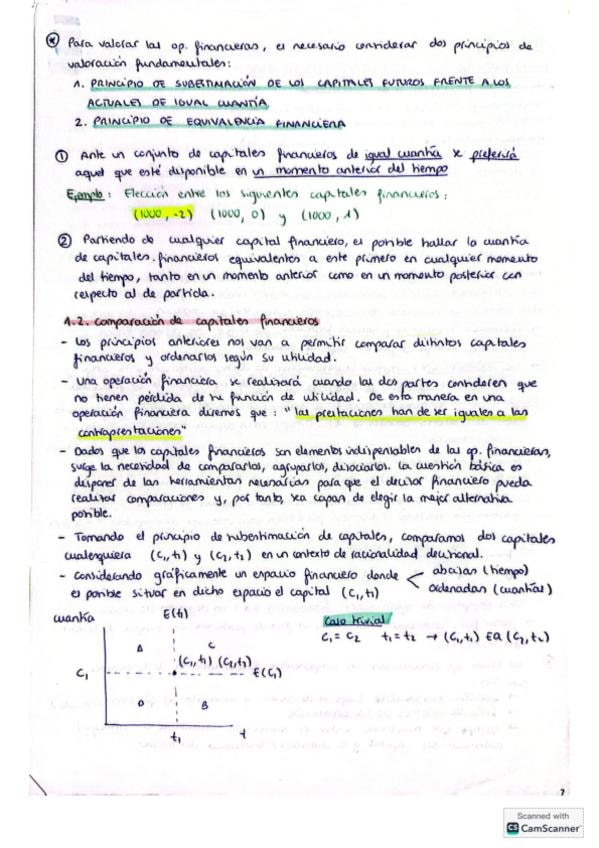 * Para valorar las op. financieras, es necesario considerar dos principios de
valoración fundamentales:
1. PRINCIPIO DE SUBESTIMACIÓN DE LOS CAPITALES FUTUROS FRENTE A LOS
ACTUALES DE IGUAL CUANTÍA
2. PRINCIPIO DE EQUIVALENCIA FINANCIERA
① Ante un conjunto de capitales financieros de igual cuantía se preferirá
aquel que esté disponible en un momento anterior del tiempo
Ejemplo: Elección entre los siguientes capitales financieros:
(1000, -2) (1000, 0) y (1000, 1)
② Partiendo de cualquier capital financiero, es posible hallar la cuantía
de capitales financieros equivalentes a este primero en cualquier momento
del tiempo, tanto en un momento anterior como en un momento posterior con
respecto al de partida.
1.2. Comparación de capitales financieros
- Los principios anteriores nos van a permitir comparar distintos capitales
financieros y ordenarlos según su utilidad.
- Una operación financiera se realizará cuando las dos partes consideren que
no tienen pérdida de su función de utilidad. De esta manera en una
operación financiera diremos que: "las prestaciones han de ser iguales a las
contraprestaciones"
- Dados que los capitales financieros son elementos indispensables de las op. financieras,
surge la necesidad de compararlos, agruparlos, disociarlos. La cuestión básica es
disponer de las herramientas necesarias para que el decisor financiero pueda
realizar comparaciones y, por tanto, sea capaz de elegir la mejor alternativa
posible.
- Tomando el principio de subestimación de capitales, comparamos dos capitales
cualesquiera (C₁, t₁) y (C₂, t₂) en un contexto de racionalidad decisional.
- Considerando gráficamente un espacio financiero donde < abcisas (tiempo)
es posible situar en dicho espacio el capital (C₁, t₁) ordenadas (cuantías)
cuantía E(t₁) Caso trivial
C₁ = C₂ t₁ = t₂ → (C₁, t₁) EQ (C₂, t₂)
A C
(C₁, t₁) (C₂, t₂)
C₁ E(C₁)
D B
t₁ t
7
Scanned with
CS CamScanner